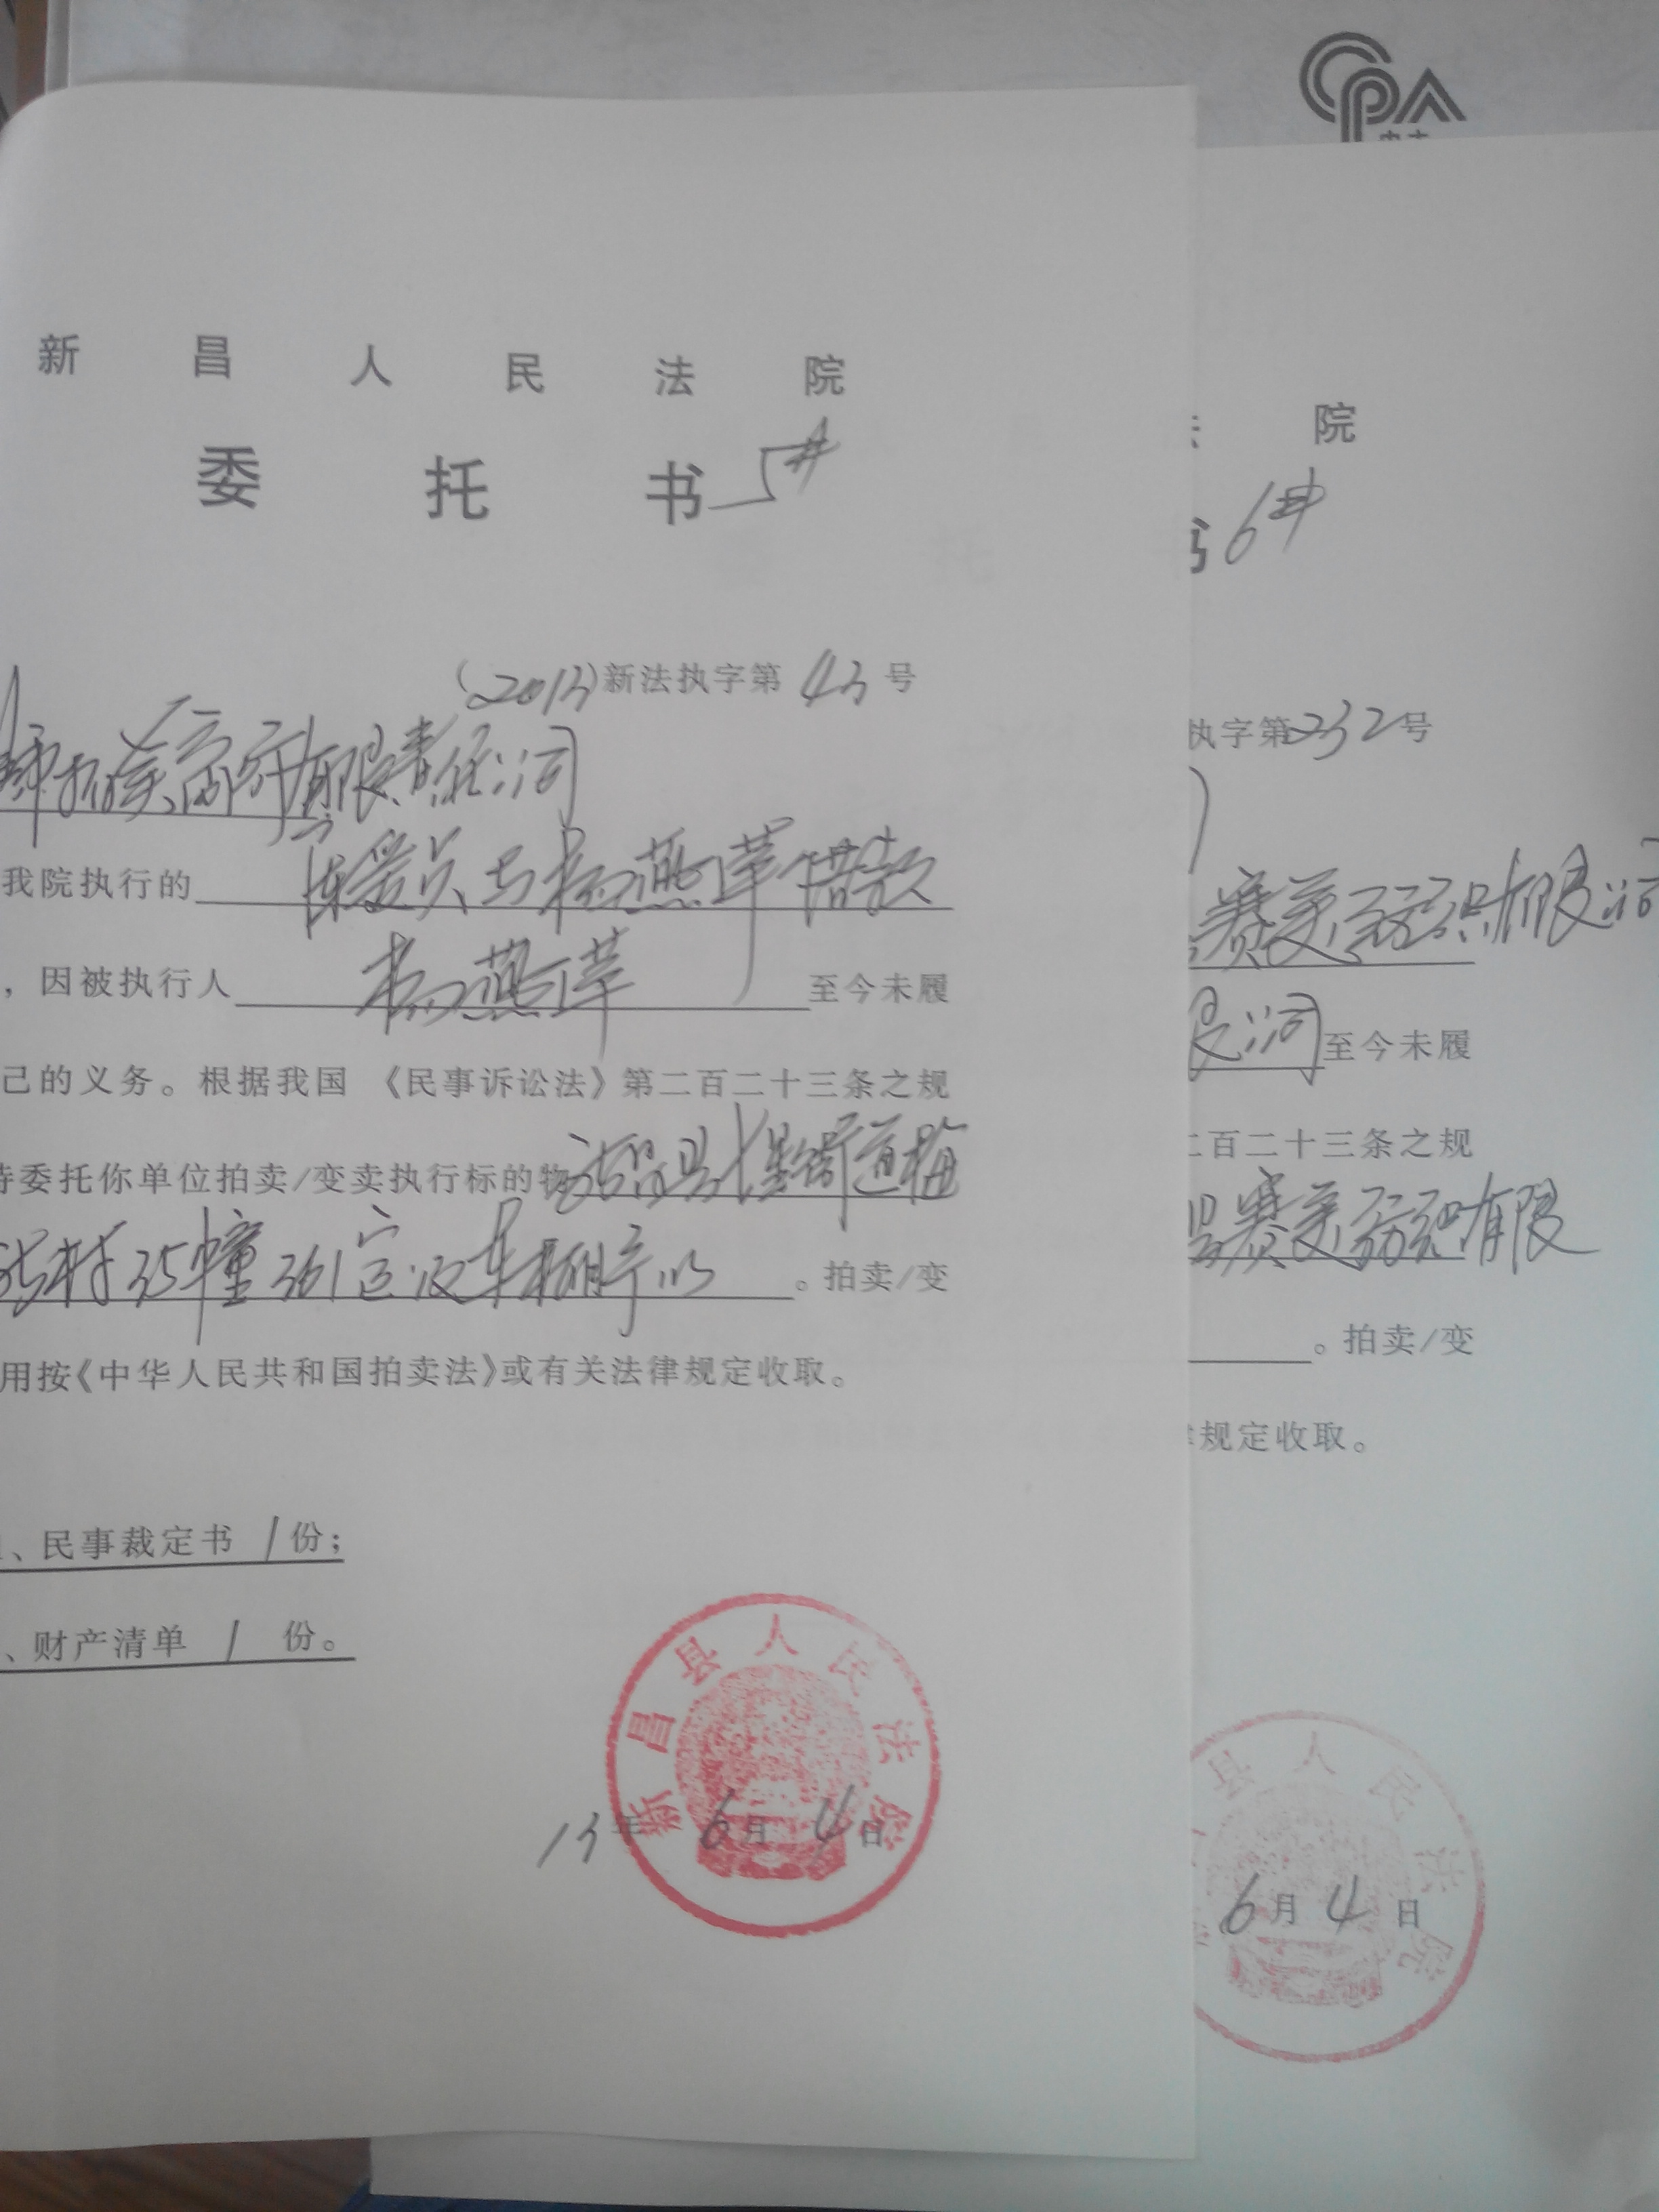 CPA
新昌人民法院
委托书 5#
(2013)新法执字第 43 号
拍卖商行有限责任公司
我院执行的 与杨燕萍借款
，因被执行人 杨燕萍 至今未履
己的义务。根据我国《民事诉讼法》第二百二十三条之规
特委托你单位拍卖/变卖执行标的物 新昌县 街道梅
村35幢361室及车棚予以 。拍卖/变
用按《中华人民共和国拍卖法》或有关法律规定收取。
、民事裁定书 1 份；
、财产清单 1 份。
新昌县人民法院
13年 6月 4日
院
书 6#
执字第232号
赛美 有限公司
限公司 至今未履
二百二十三条之规
赛美 有限
。拍卖/变
律规定收取。
县人民法院
6月 4 日